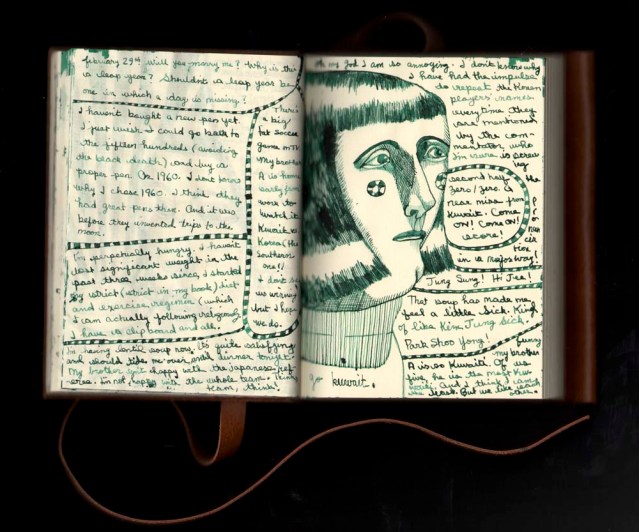 february 29th. will you marry me? Why is this
a leap year? Shouldn't a leap year be
me in which a day is missing?
I haven't bought a new pen yet.
I just wish I could go back to
the fifteen hundreds (avoiding
the black death) and buy a
proper pen. Or 1960. I don't know
why I chose 1960. I think they
had great pens then. And it was
before they invented trips to the
moon.
I'm perpetually hungry. I haven't
lost significant weight in the
past three weeks since I started
my strict (strict in my book) diet
and exercise regimen (which
I am actually following religiously.
I have a clipboard and all.
I'm having lentil soup now. It's quite satisfying
and should tide me over until dinner tonight.
My brother isn't happy with the Japanese ref-
eree. I'm not happy with the whole team. I
team, think!
There's
a big
fat soccer
game on TV.
My brother
A is home
early from
work to
watch it.
Kuwait vs
Korea (the
southern
one!)
I don't
us wrong
but I hope
we do.
oh my god I am so annoying. I don't know why
I have had the impulse
to repeat the Korean
players' names
every time they
are mentioned
by the com-
mentator, who
I'm view is screw
ing
up
or
nun
cia
tion
in a major way!
second half. The
zero/zero. a
near miss from
Kuwait. Come
ON! Come ON!
score!
Jung Sung! Hi Jee!
That soup has made me
feel a little sick. Kind
of like Kim Jung Sick.
Park Shoo Yong!
funny
my brother
A is so Kuwaiti. Of us
five, he is the most Kuw
aiti. And I think I am
the least. But we love each
other.
go kuwait.